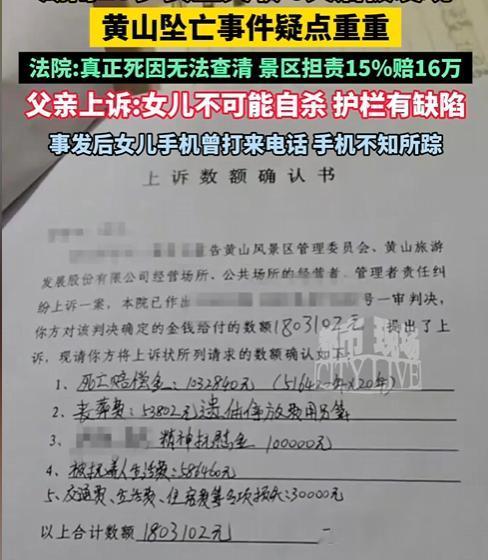 黄山坠亡事件疑点重重
法院:真正死因无法查清 景区担责15%赔16万
父亲上诉:女儿不可能自杀 护栏有缺陷
事发后女儿手机曾打来电话 手机不知所踪
上诉数额确认书
告黄山风景区管理委员会、黄山旅游
发展股份有限公司经营场所、公共场所的经营者、管理者责任纠
纷上诉一案，本院已作出 号一审判决，
你方对该判决确定的金钱给付的数额1803102元 提出了上
诉，现请你方将上诉状所列请求的数额确认如下：
1、死亡赔偿金：1032840元（51642一年×20年）
2、丧葬费：43802元遗体停放费用另算
3、 精神抚慰金 100000元
4、被扶养人生活费：586460元
5、交通费、生活费、住宿费等各项损失：30000元
以上合计数额 1803102元
都市现场
CITY LIVE